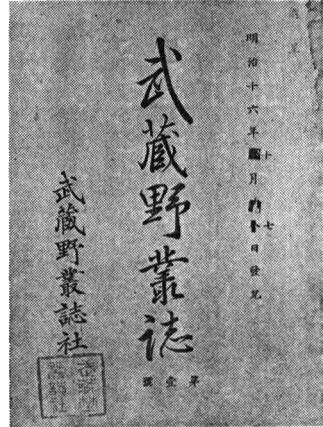 明治十六年十月七日發兌
武藏野叢誌
第壹號
武藏野叢誌社